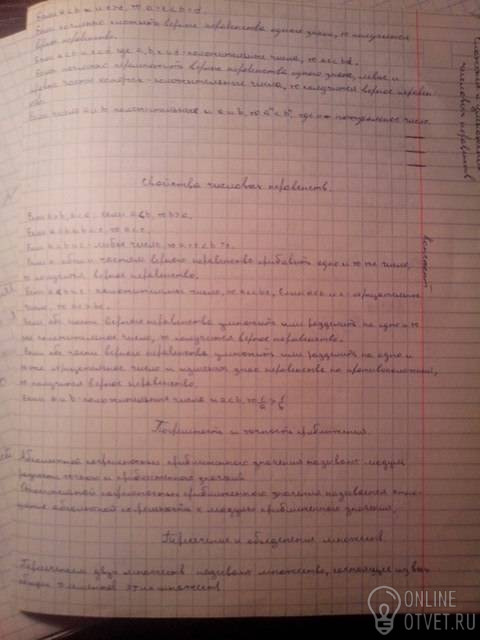 Если a<b и c<d, то a+c<b+d.
Если почленно сложить верные неравенства одного знака, то получится
верное неравенство.
Если a<b и c<d, где a, b, c и d - положительные числа, то ac<bd.
Если почленно перемножить верные неравенства одного знака, левые и
правые части которых - положительные числа, то получится верное неравен-
ство.
Если числа a и b положительные и a<b, то aⁿ<bⁿ, где n - натуральное число.
Свойства числовых неравенств.
Если a>b, b<a. Если a<b, b>a.
Если a<b и b<c, то a<c.
Если a<b и c - любое число, то a+c<b+c.
Если к обеим частям верного неравенства прибавить одно и то же число,
то получится верное неравенство.
Если a<b и c - положительное число, то ac<bc, c - отрицательное
число, то ac>bc.
Если обе части верного неравенства умножить или разделить на одно и то
же положительное число, то получится верное неравенство.
Если обе части верного неравенства умножить или разделить на одно и
то же отрицательное число и изменить знак неравенства на противоположный,
то получится верное неравенство.
Если a и b - положительные числа и a<b, то 1/a > 1/b
Погрешность и точность приближения.
Абсолютной погрешностью приближённого значения называют модуль
разности точного и приближённого значений.
Относительной погрешностью приближённого значения называется отно-
шение абсолютной погрешности к модулю приближённого значения.
Пересечение и объединение множеств.
Пересечением двух множеств называют множество, состоящее из всех
общих элементов этих множеств.
числовых неравенств
Конспект
ONLINE
OTVET.RU